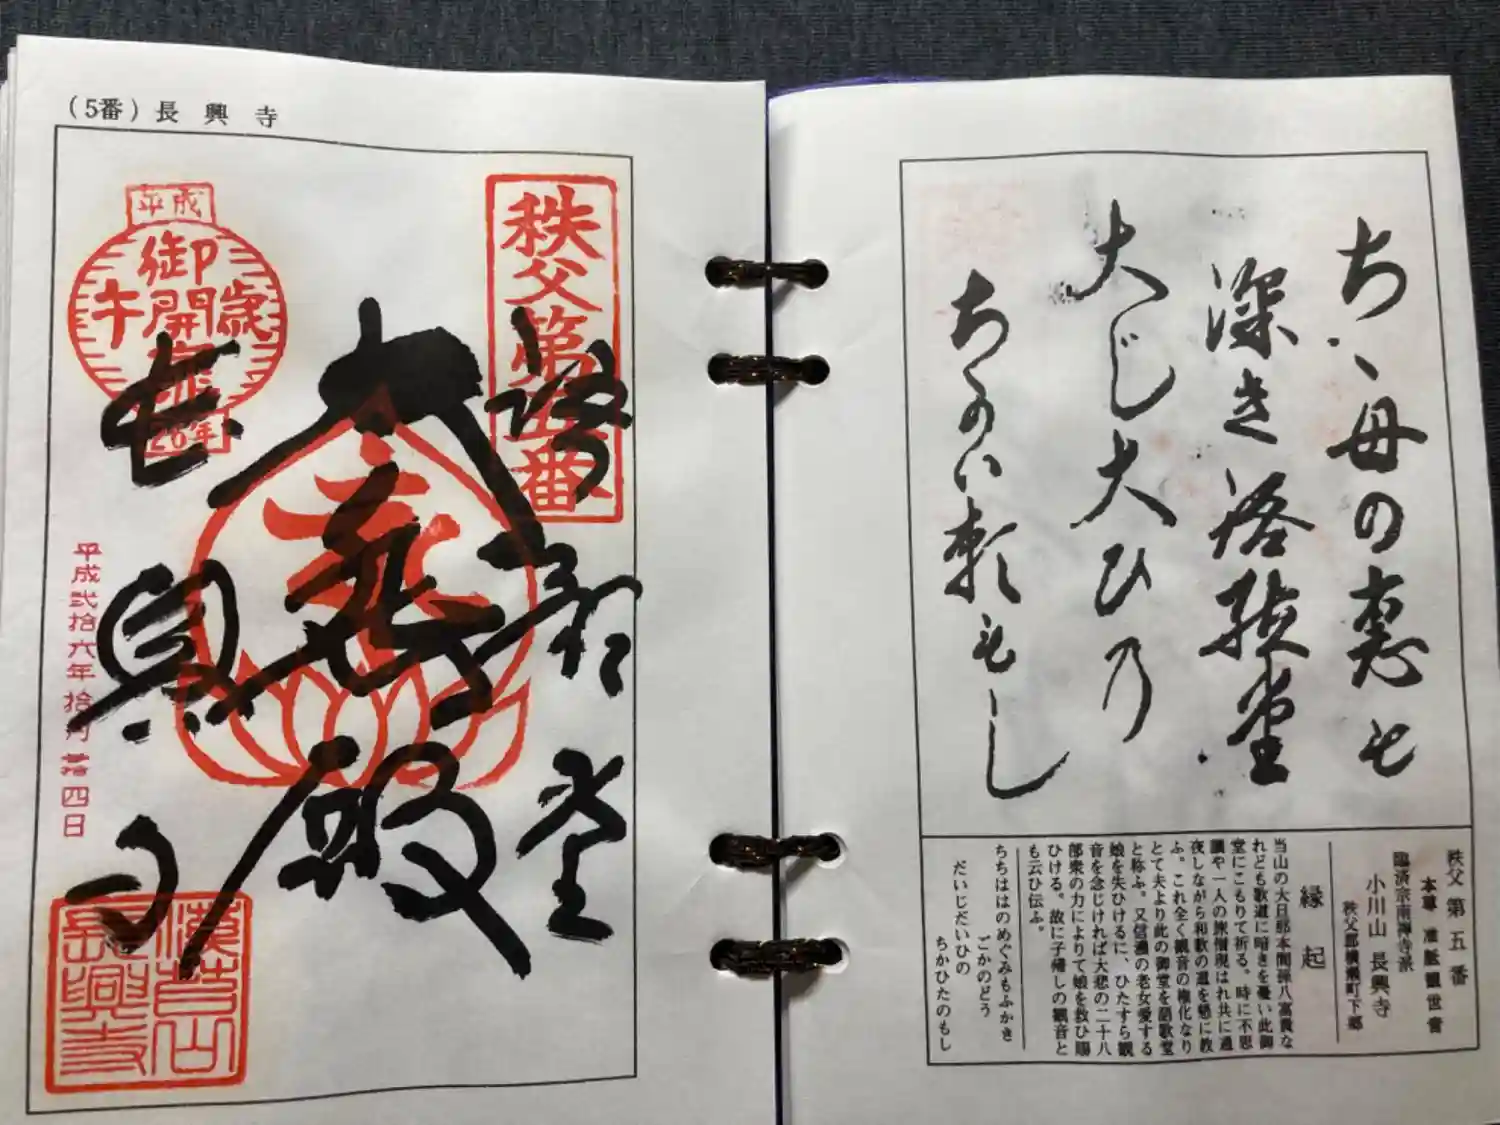 (5番)長興寺
秩父第五番
語歌堂
大悲殿
長興寺
平成
御開帳
午歳
26年
平成弐拾六年拾月廿四日
長興寺
ちゝ母の恵も
深き語歌堂
大じ大ひの
ちかひ頼もし
秩父 第五番
本尊 准胝観世音
臨済宗南禅寺派
小川山 長興寺
秩父郡横瀬町下郷
縁起
当山の大旦那本間孫八富貴な
れども歌道に暗きを憂い此御
堂にこもりて祈る。時に不思
議や一人の旅僧現はれ共に通
夜しながら和歌の道を懇に教
ふ。これ全く観音の権化なり
とて夫より此の御堂を語歌堂
と称ふ。又信濃の老女愛する
娘を失ひけるに、ひたすら観
音を念じければ大悲の二十八
部衆の力によりて娘を救ひ賜
ひける。故に子帰しの観音と
も云ひ伝ふ。
ちちははのめぐみもふかき
ごかのどう
だいじだいひの
ちかひたのもし